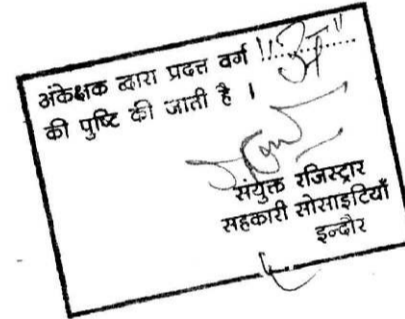 अंकेक्षक द्वारा प्रदत्त वर्ग !!अ!!
की पुष्टि की जाती है ।
संयुक्त रजिस्ट्रार
सहकारी सोसाइटियाँ
इन्दौर